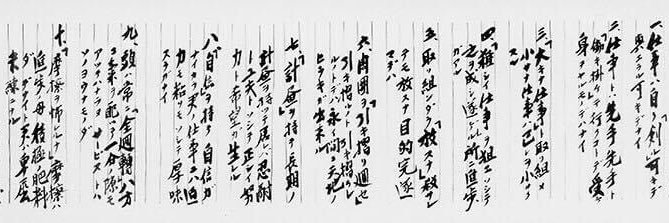 一、仕事ハ自ラ「創」ル可キデ
與エラル可キデナイ
二、仕事トハ先手先手ト
「働」キ掛ケテ行クコトデ受ケ
身デヤルモノデナイ
三、「大キナ仕事」ト取リ組メ
小サナ仕事ハ「己」ヲ小サク
スル
四、「難シイ仕事」ヲ狙エ ソシテ
之ヲ成シ遂ゲル所ニ進歩
ガアル
五、取リ組ンダラ「放スナ」殺サレ
テモ放スナ 目的完遂
マデハ
六、周囲ヲ「引キ摺リ廻セ」
引キ摺ルノト引キ摺ラレ
ルノトデハ永イ間ニ天地ノ
ヒラキガ出来ル
七、「計画」ヲ持テ 長期ノ
計画ヲ持ツテ居レバ忍耐
ト工夫トソシテ正シイ努
力ト希望ガ生レル
八、「自信」ヲ持テ 自信ガ
ナイカラ君ノ仕事ニハ迫
力モ粘リモソシテ厚味
スラガナイ
九、頭ハ常ニ「全廻轉」八方
ニ気ヲ配ツテ一分ノ隙モ
アツテハナラヌ サービストハ
ソノヨウナモノダ
十、「摩擦ヲ怖レルナ」摩擦ハ
進歩ノ母 積極ノ肥料
ダ デナイト君ハ卑屈
未練ニナル